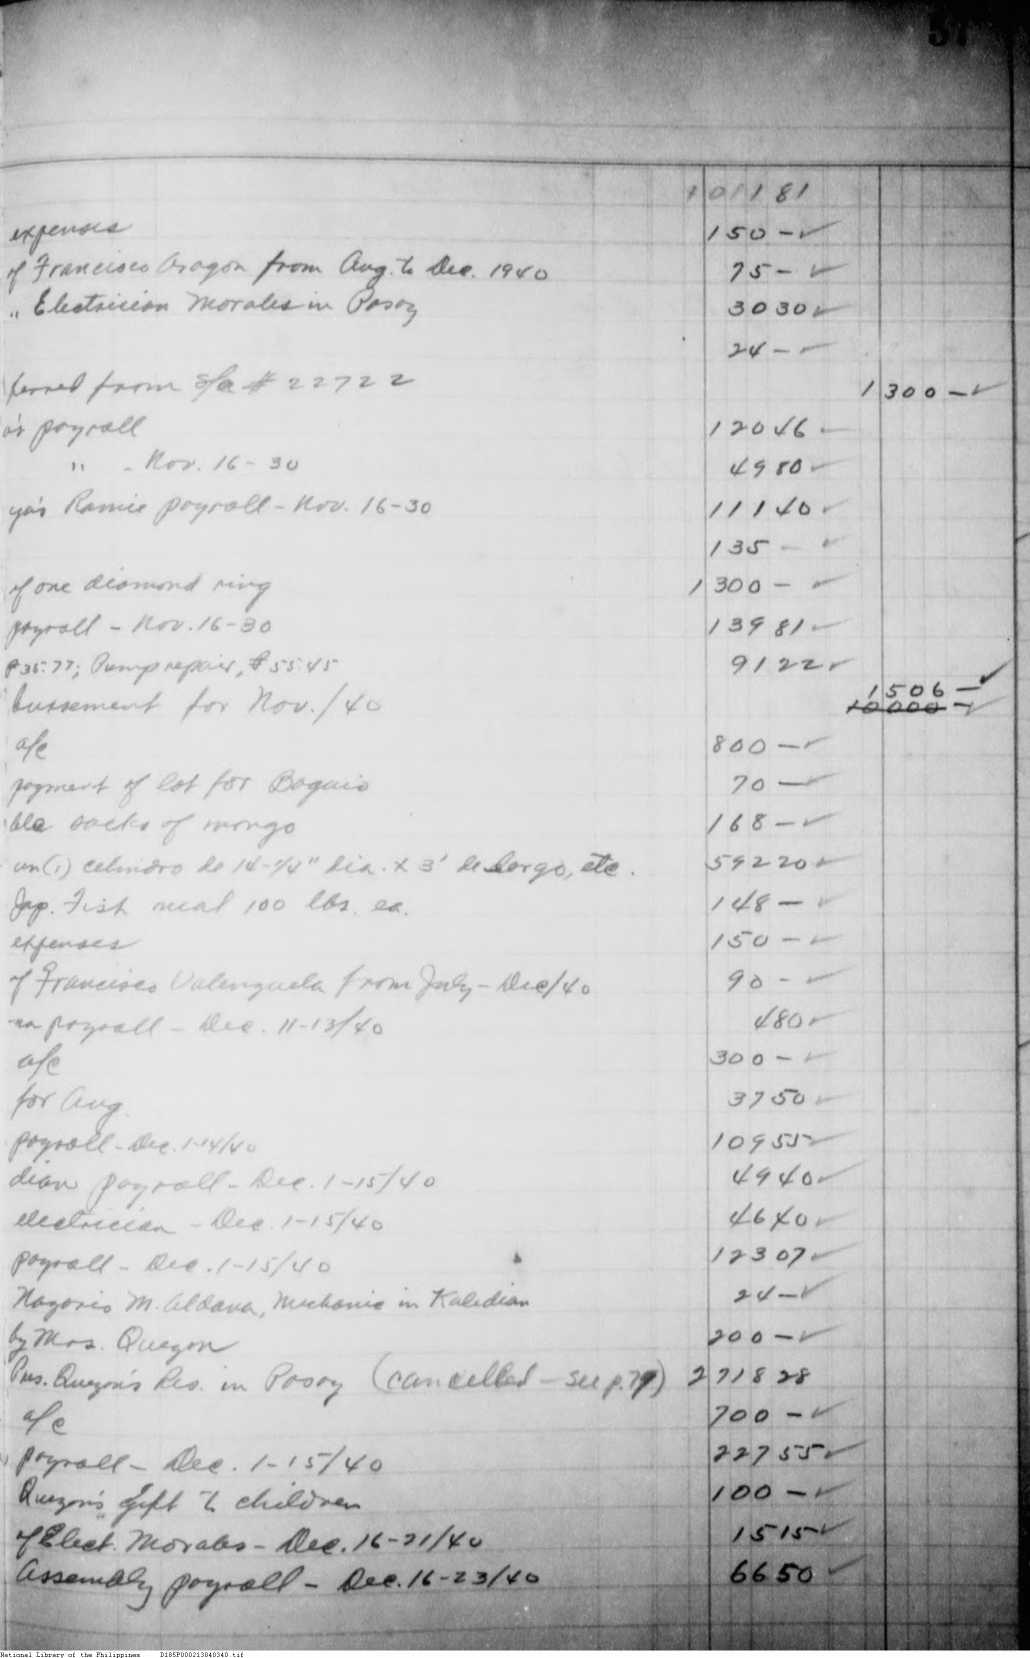 57
101181
expenses 150 - ✓
of Francisco Aragon from Aug. to Dec. 1940 75 - ✓
" Electrician Morales in Pasay 3030 ✓
24 - ✓
ferred from S/a # 22722 1300 - ✓
o's payroll 12046 -
" - Nov. 16-30 4980 ✓
ya's Ramie payroll - Nov. 16-30 11140 ✓
135 - ✓
of one diamond ring 1300 - ✓
payroll - Nov. 16-30 13981 ✓
₱35.77; Pump repair, ₱55.45 9122 ✓
1506 - ✓
bursement for Nov./40 10000 - ✓
a/c 800 - ✓
payment of lot for Baguio 70 - ✓
sacks of mongo 168 - ✓
un (1) cilindro de 14-3/4" dia. x 3' de largo, etc. 59220 ✓
Jap. Fish meal 100 lbs. ea. 148 - ✓
expenses 150 - ✓
of Francisco Valenzuela from July - Dec/40 90 - ✓
payroll - Dec. 11-13/40 480 ✓
a/c 300 - ✓
for Aug. 3750 ✓
payroll - Dec. 1-14/40 10955 ✓
dian payroll - Dec. 1-15/40 4940 ✓
electrician - Dec. 1-15/40 4640 ✓
payroll - Dec. 1-15/40 12307 ✓
Nazario M. Aldana, Mechanic in Kaledian 24 - ✓
by Mrs. Quezon 200 - ✓
Pres. Quezon's Res. in Pasay (cancelled - see p. 79) 271828
a/c 700 - ✓
payroll - Dec. 1-15/40 22755 ✓
Quezon's gift to children 100 - ✓
of Elect. Morales - Dec. 16-21/40 1515 ✓
Assembly payroll - Dec. 16-23/40 6650 ✓
National Library of the Philippines D185P000213840340.tif